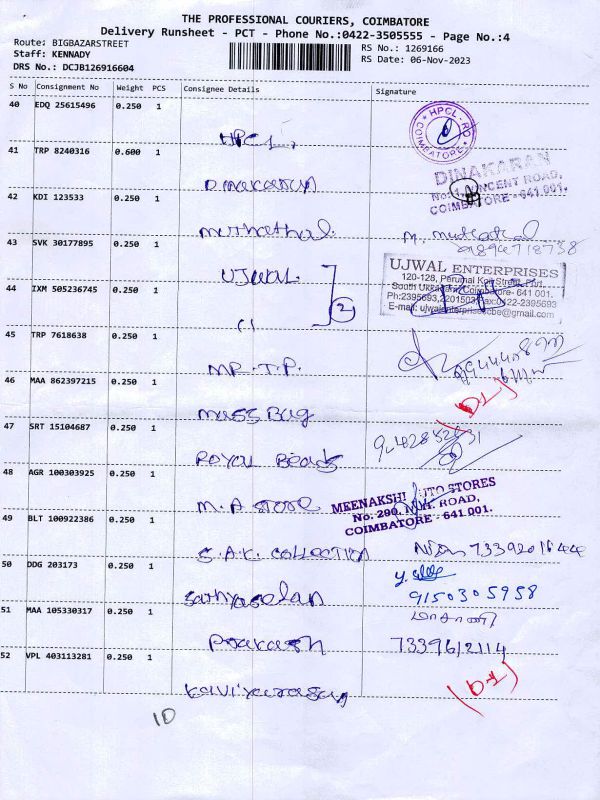 THE PROFESSIONAL COURIERS, COIMBATORE
Delivery Runsheet - PCT - Phone No.:0422-3505555 - Page No.:4
Route: BIGBAZARSTREET
RS No.: 1269166
Staff: KENNADY
RS Date: 06-Nov-2023
DRS No.: DCJB126916604
S No Consignment No Weight PCS Consignee Details Signature
40 EDQ 25615496 0.250 1
HPCL
HPCL. RO
COIMBATORE
41 TRP 8240316 0.600 1
Dinakaran
DINAKARAN
VINCENT ROAD,
COIMBATORE - 641 001.
42 KDI 123533 0.250 1
Muthathal
43 SVK 30177895 0.250 1
UJWAL
UJWAL ENTERPRISES
120-128, Perumal Koil Street, Part,
South Ukkadam, Coimbatore- 641 001.
Ph:2395693,2201503 Fax:0422-2395693
E-mail: ujwalenterprisescbe@gmail.com
44 IXM 505236745 0.250 1
11
2
45 TRP 7618638 0.250 1
MR. T.P.
46 MAA 862397215 0.250 1
Mass Bag
(D-1)
47 SRT 15104687 0.250 1
Royal Beads
48 AGR 100303925 0.250 1
M. A Store
MEENAKSHI AUTO STORES
No. 290, N.H. ROAD,
COIMBATORE - 641 001.
49 BLT 100922386 0.250 1
S.A.K. Collection
50 DDG 203173 0.250 1
Sathyaselan
9150305958
51 MAA 105330317 0.250 1
Prakash
7339612114
52 VPL 403113281 0.250 1
Kaviyarasan
(D-1)
10